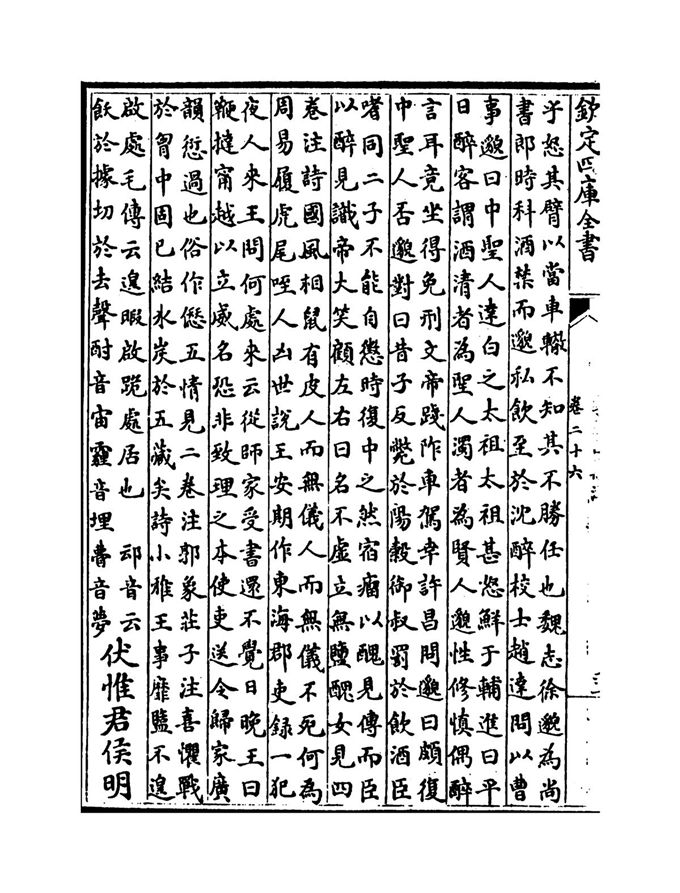 欽定四庫全書
卷二十六
乎怒其臂以當車轍不知其不勝任也魏志徐邈為尚
書郎時科酒禁而邈私飲至於沈醉校士趙達問以曹
事邈曰中聖人達白之太祖太祖甚怒鮮于輔進曰平
日醉客謂酒清者為聖人濁者為賢人邈性修慎偶醉
言耳竟坐得免刑文帝踐阼車駕幸許昌問邈曰頗復
中聖人否邈對曰昔子反斃於陽穀御叔罰於飲酒臣
嗜同二子不能自懲時復中之然宿瘤以醜見傳而臣
以醉見識帝大笑顧左右曰名不虛立無鹽醜女見四
卷注詩國風相鼠有皮人而無儀人而無儀不死何為
周易履虎尾咥人凶世說王安期作東海郡吏錄一犯
夜人來王問何處來云從師家受書還不覺日晚王曰
鞭撻甯越以立威名恐非致理之本使吏送令歸家廣
韻愆過也俗作僁五情見二卷注郭象莊子注喜懼戰
於胷中固已結氷炭於五藏矣詩小雅王事靡盬不遑
啟處毛傳云遑暇啟跪處居也 音云
飫於據切於去聲酎音宙霾音埋 瞢音夢
伏惟君侯明